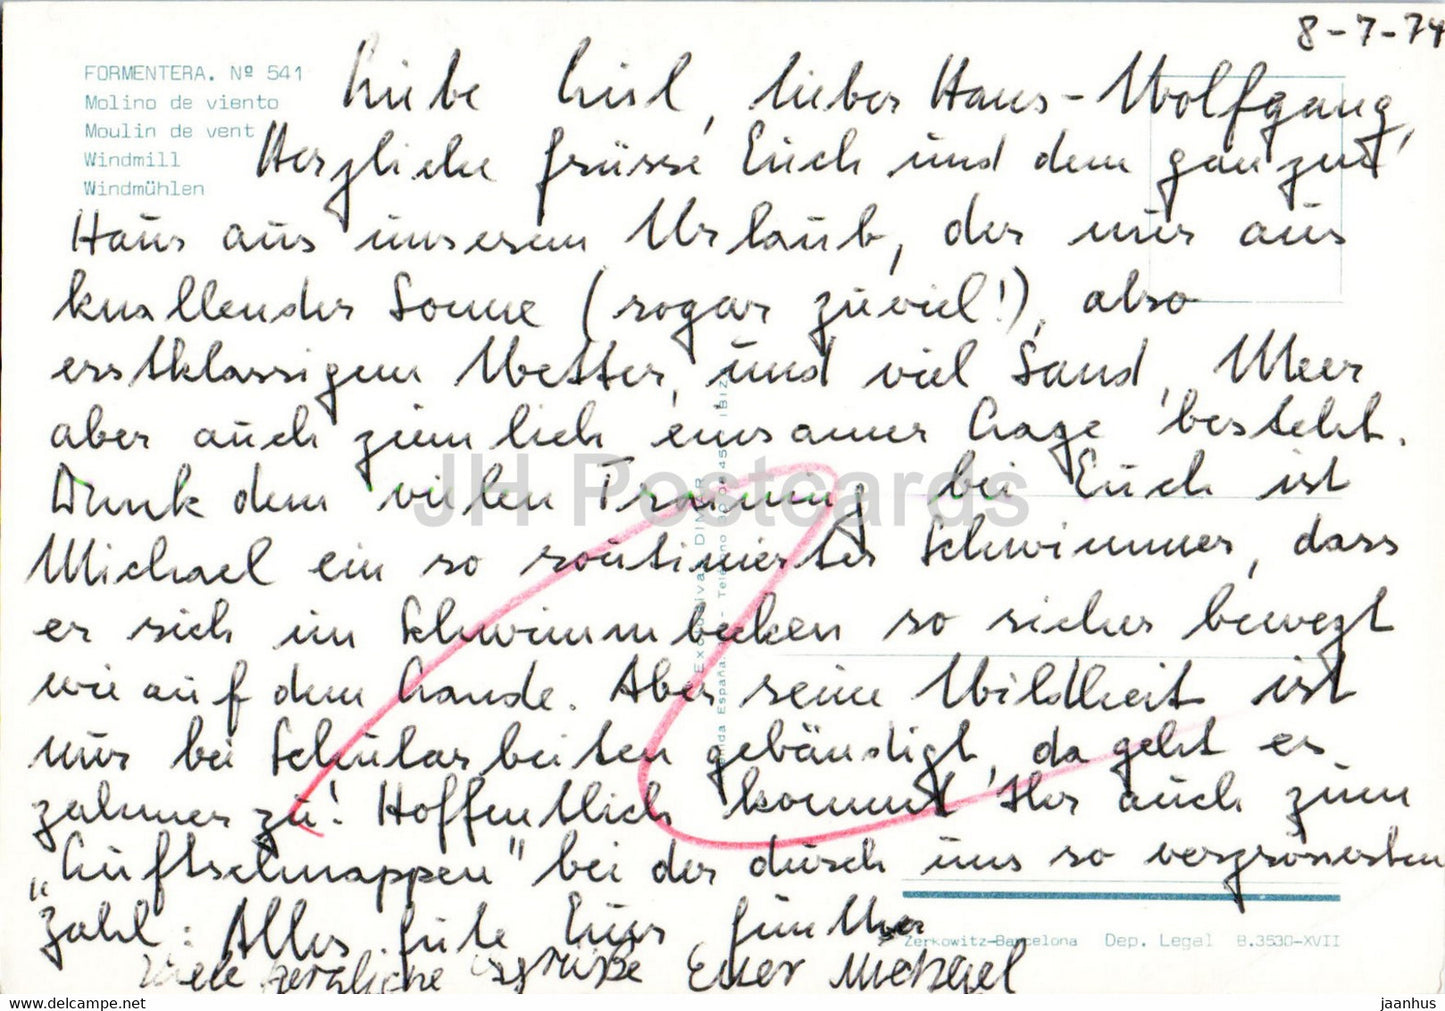 8-7-74
FORMENTERA. Nº 541
Molino de viento
Moulin de vent
Windmill
Windmühlen
Liebe Lisl, lieber Hans-Wolfgang,
Herzliche Grüsse Euch und dem ganzen
Haus aus unserem Urlaub, der nur aus
knallender Sonne (sogar zuviel!), also
erstklassigem Wetter, und viel Sand, Meer
aber auch ziemlich einsamer Lage besteht.
Dank dem vielen Training bei Euch ist
Michael ein so routinierter Schwimmer, dass
er sich im Schwimmbecken so sicher bewegt
wie auf dem Lande. Aber seine Wildheit ist
nur bei Schularbeiten gebändigt, da geht es
zahmer zu! Hoffentlich kommt Ihr auch zum
"Luftschnappen" bei der durch uns so vergrösserten
Zahl. Alles Gute Euer Günther
Viele herzliche Grüße Euer Michael
Zerkowitz-Barcelona Dep. Legal B.3530-XVII
JH Postcards
www.delcampe.net
jaanhus